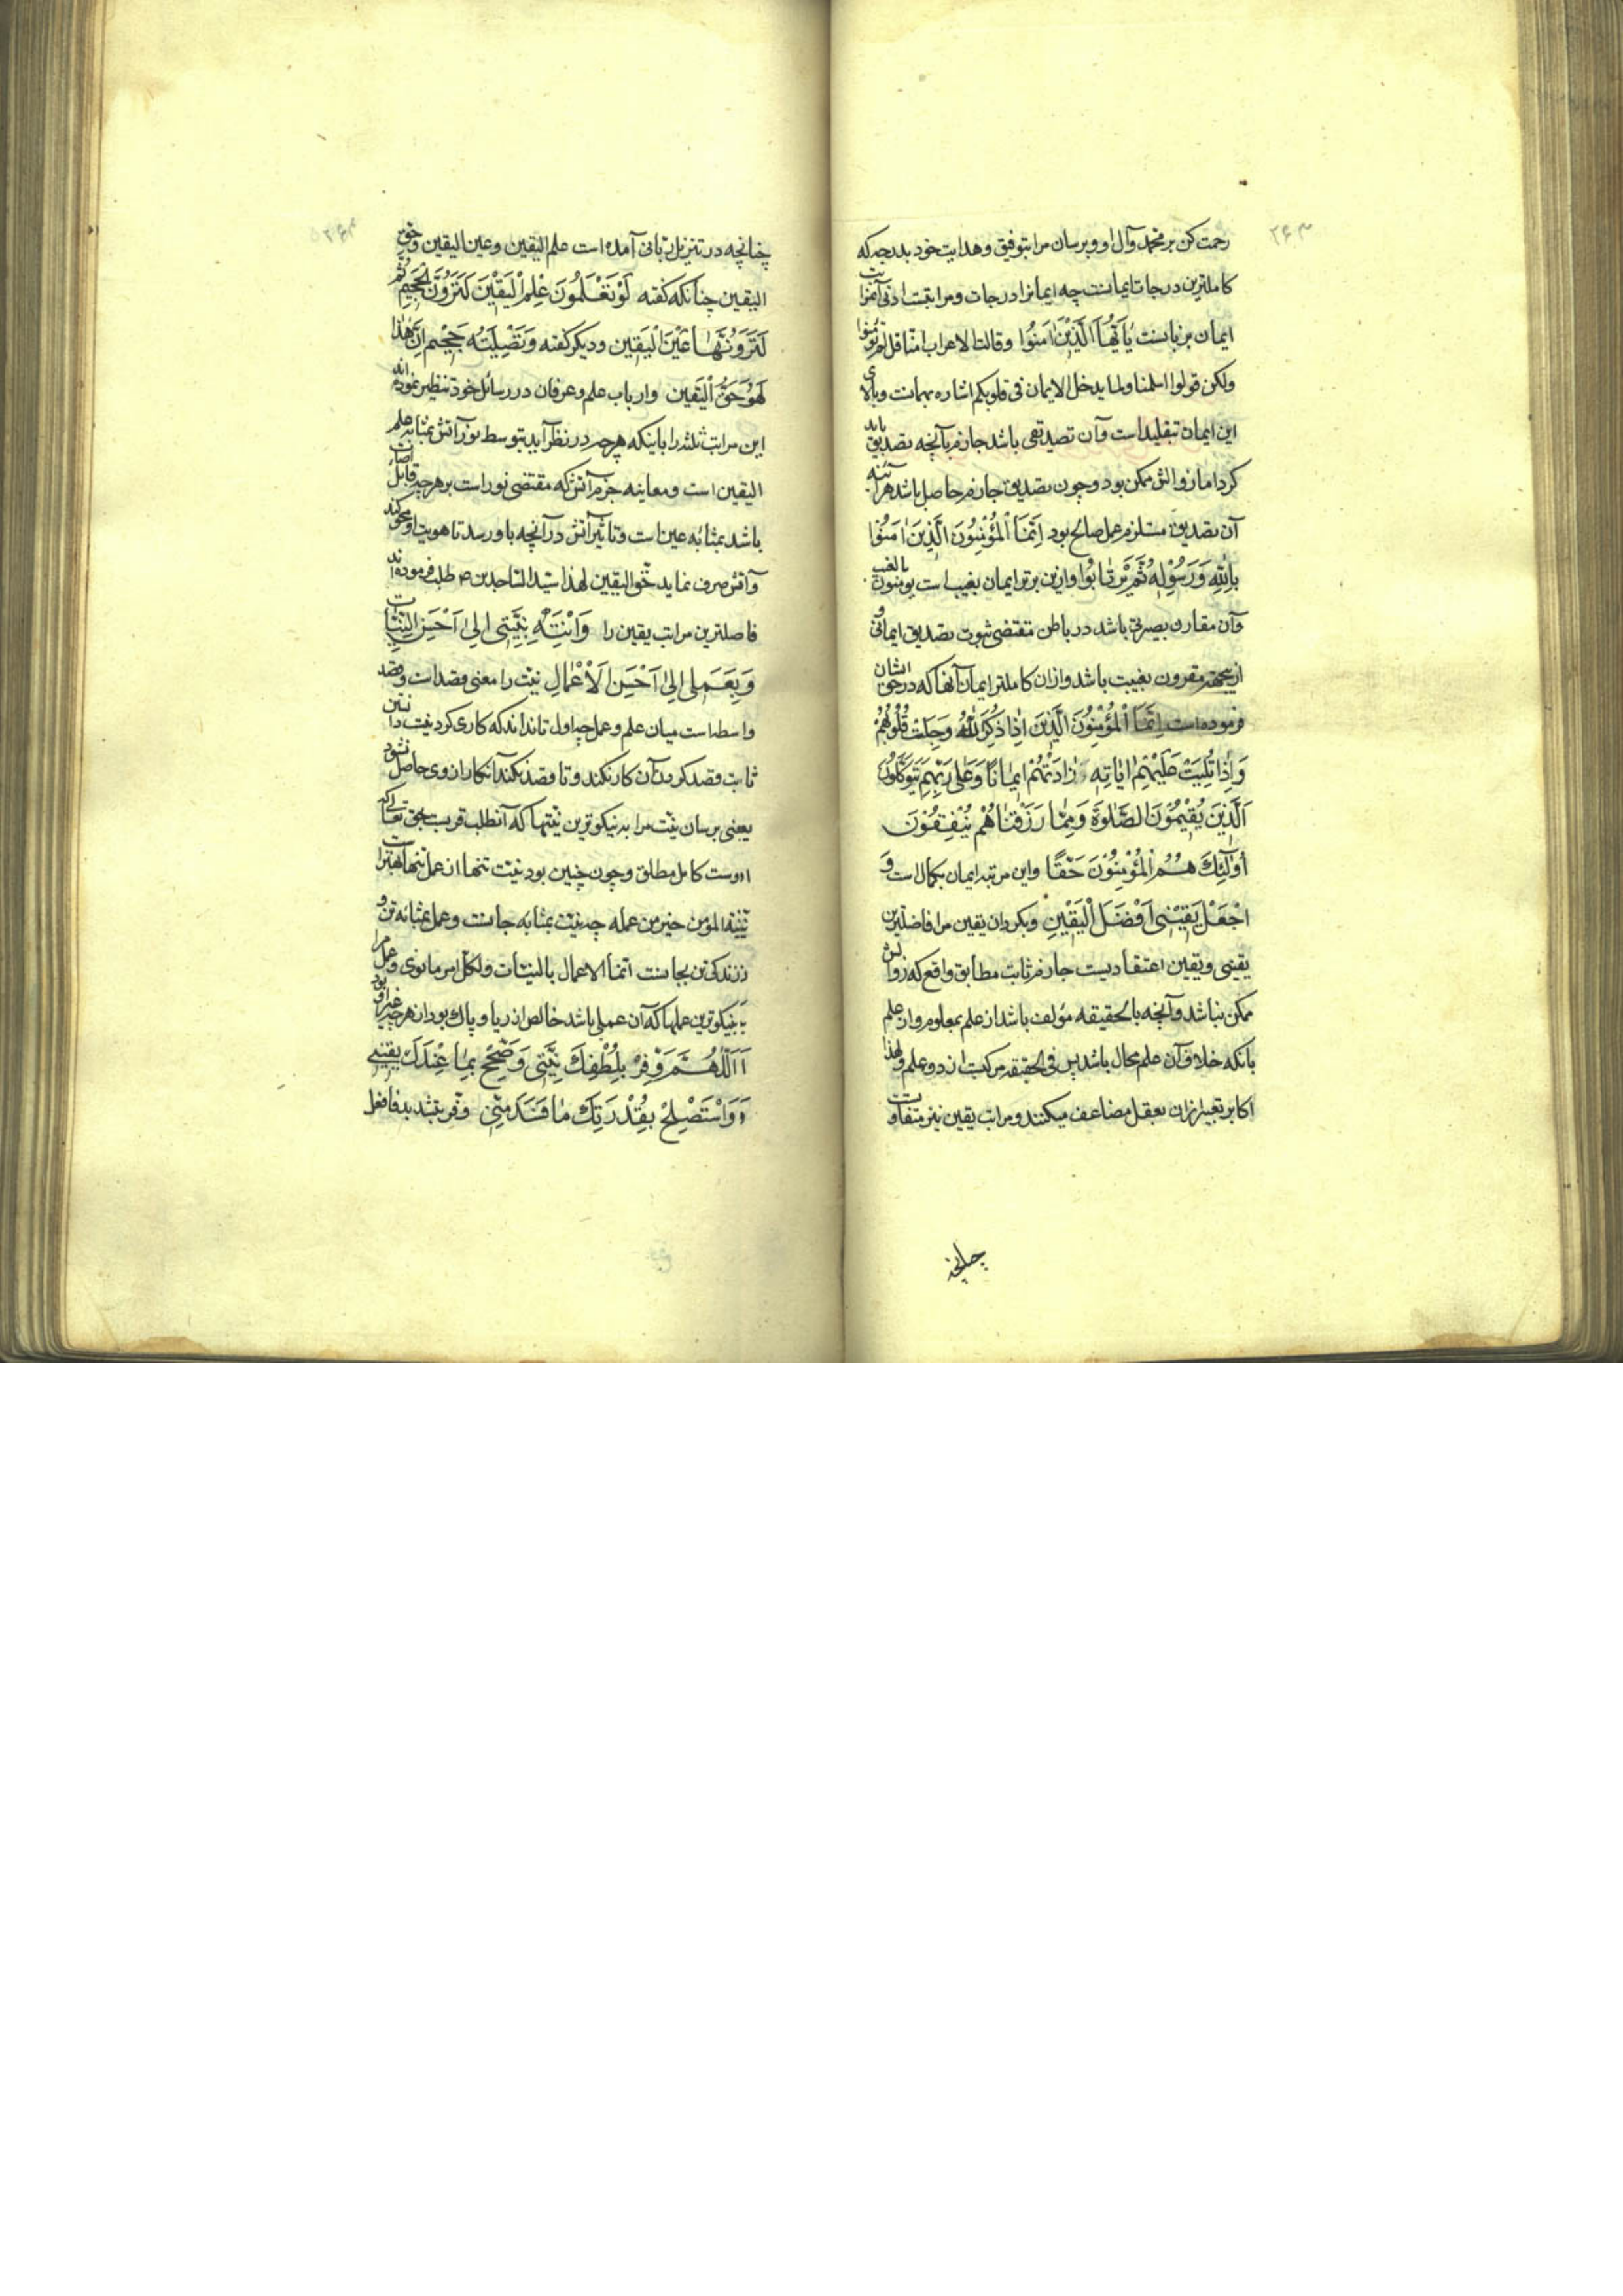 ۲۶۳
رحمت کن بر محمد وآل او وبرسان مرا بتوفیق وهدایت خود بدرجه که
کاملترین درجات ایمانست چه ایمانرا درجات ومراتبست ادنی آنمراتب
ایمان بزبانست یَا اَیُّهَا الَّذِیْنَ اٰمَنُوا وقالت الاعراب امنا قل لم تؤمنوا
ولکن قولوا اسلمنا ولما یدخل الایمان فی قلوبکم اشاره بهمانست وبالای
این ایمان تقلید است وآن تصدیقی باشد جازم بآنچه تصدیق باید
کرد اما زوالش ممکن بود وچون تصدیق جازم حاصل باشد هرآئینه
آن تصدیق مستلزم عمل صالح بود اِنَّمَا الْمُؤْمِنُونَ الَّذِینَ اٰمَنُوْا
بِاللّٰهِ وَرَسُوْلِهٖ ثُمَّ لَمْ یَرْتٰابُوا وازین برتر ایمان بغیب است یؤمنون بالغیب
وآن مقارن بصیرتی باشد در باطن مقتضی ثبوت تصدیق ایمانی و
ازینجهة مقرون بغیبت باشد وازان کاملتر ایمان آنها که در حق ایشان
فرموده است اِنَّمَا الْمُؤْمِنُونَ الَّذِینَ اِذَا ذُکِرَ اللّٰهُ وَجِلَتْ قُلُوبُهُمْ
وَاِذَا تُلِیَتْ عَلَیْهِمْ اٰیَاتُهٗ زَادَتْهُمْ اِیمٰانًا وَعَلٰی رَبِّهِمْ یَتَوَکَّلُونَ
اَلَّذِینَ یُقِیْمُوْنَ الصَّلٰوةَ وَمِمّٰا رَزَقْنٰاهُمْ یُنْفِقُوْنَ
اُوْلٰئِکَ هُمُ الْمُؤْمِنُوْنَ حَقًّا واین مرتبه ایمان بکمال است وَ
اجْعَلْ یَقِیْنِی اَفْضَلَ الْیَقِیْنِ وبگردان یقین مرا فاضلترین
یقینی ویقین اعتقادیست جازم ثابت مطابق واقع که زوالش
ممکن نباشد وآنچه بالحقیقه مؤلف باشد از علم بمعلوم واز علم
بآنکه خلاف آن علم محال باشد پس فی الحقیقه مرکبست از دو علم ولهذا
اکابر تعبیر ازان بعقل مضاعف میکنند ومراتب یقین نیز متفاوتست
چنانچه
چنانچه در تنزیل ربانی آمده است علم الیقین وعین الیقین وحق
الیقین چنانکه گفته لَوْ تَعْلَمُونَ عِلْمَ الْیَقِیْنِ لَتَرَوُنَّ الْجَحِیمَ ثُمَّ
لَتَرَوُنَّهَا عَیْنَ الْیَقِینِ ودیگر گفته وَتَصْلِیَةُ جَحِیْمٍ اِنَّ هٰذَا
لَهُوَ حَقُّ الْیَقِینِ وارباب علم وعرفان در رسائل خود تنظیر نموده اند
این مراتب ثلثه را باینکه هرچه در نظر آید بتوسط نور آتش بمثابه علم
الیقین است ومعاینه جرم آتش که مقتضی نور است بر هرچه قابل اضاءت
باشد بمثابه عین است وتاثیر آتش در آنچه باو رسد تا هویت او محو کند
وآتش صرف نماید حق الیقین لهذا سید الساجدین ع طلب فرموده اند
فاضلترین مراتب یقین را وَانْتَهِ بِنِیَّتِی اِلٰی اَحْسَنِ النِّیَّاتِ
وَبِعَمَلِی اِلٰی اَحْسَنِ الْاَعْمٰالِ نیّت را معنی قصد است وقصد
واسطه است میان علم وعمل چه اول تا نداند که کاری کردنیست
ثابت قصد کردن آن کار نکند وتا قصد نکند آنکار از وی حاصل نشود
یعنی برسان نیّت مرا به نیکوترین نیّتها که آن طلب قربت بحق تعالی که
اوست کامل مطلق وچون چنین بود نیّت تنها از عمل تنها بهتر است
نیّة المؤمن خیر من عمله چه نیّت بمثابه جانست وعمل بمثابه تن و
زندگی تن بجانست انّما الاعمال بالنیّات ولکل امرء ما نوی وعمل مرا
به نیکوترین عملها که آن عملی باشد خالص از ریا وپاک بود از هرچه غیر او بود
اَللّٰهُمَّ وَفِّرْ بِلُطْفِکَ نِیَّتِی وَصَحِّحْ بِمٰا عِنْدَکَ یَقِیْنِی
وَاسْتَصْلِحْ بِقُدْرَتِکَ مٰا فَسَدَ مِنِّی